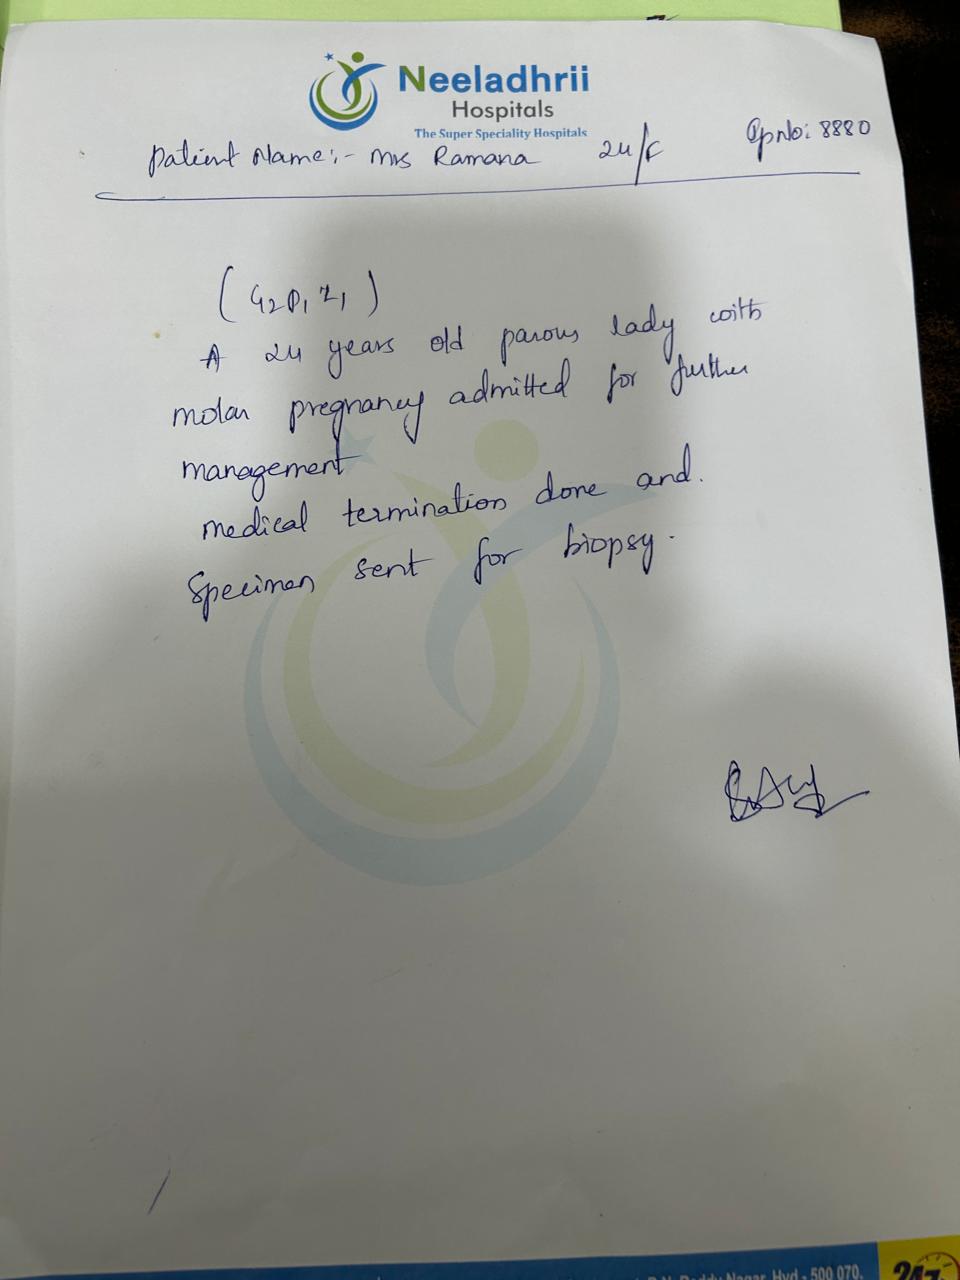 Neeladhrii
Hospitals
The Super Speciality Hospitals
Patient Name:- Mrs Ramana 24/F Op No: 8880
(G2P1L1)
A 24 years old parous lady with
molar pregnancy admitted for further
management
medical termination done and.
Specimen sent for biopsy.
Reddy Nagar, Hyd - 500 070.
24